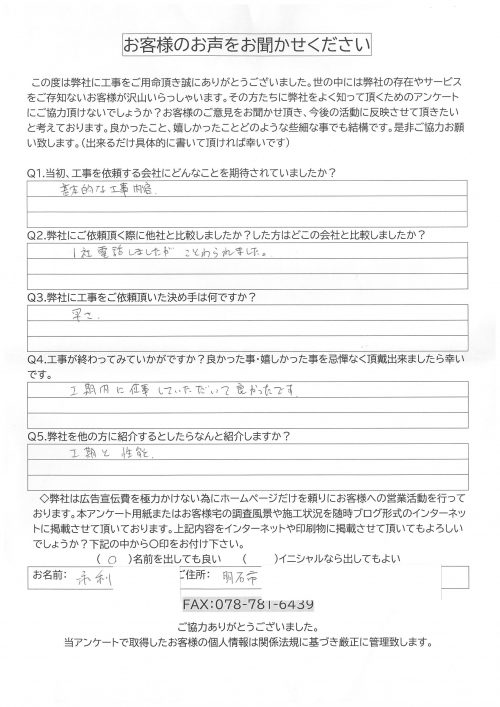 お客様のお声をお聞かせください
この度は弊社に工事をご用命頂き誠にありがとうございました。世の中には弊社の存在やサービス
をご存知ないお客様が沢山いらっしゃいます。その方たちに弊社をよく知って頂くためのアンケート
にご協力頂けないでしょうか？お客様のご意見をお聞かせ頂き、今後の活動に反映させて頂きたい
と考えております。良かったこと、嬉しかったことどのような些細な事でも結構です。是非ご協力お願
い致します。（出来るだけ具体的に書いて頂ければ幸いです）
Q1.当初、工事を依頼する会社にどんなことを期待されていましたか？
基本的な工事内容.
Q2.弊社にご依頼頂く際に他社と比較しましたか？した方はどこの会社と比較しましたか？
1社電話しましたが ことわられました。
Q3.弊社に工事をご依頼頂いた決め手は何ですか？
早さ.
Q4.工事が終わってみていかがですか？良かった事・嬉しかった事を忌憚なく頂戴出来ましたら幸い
です。
工期内に仕事していただいて良かったです
Q5.弊社を他の方に紹介するとしたらなんと紹介しますか？
工期と性能.
◇弊社は広告宣伝費を極力かけない為にホームページだけを頼りにお客様への営業活動を行って
おります。本アンケート用紙またはお客様宅の調査風景や施工状況を随時ブログ形式のインターネッ
トに掲載させて頂いております。上記内容をインターネットや印刷物に掲載させて頂いてもよろしい
でしょうか？下記の中から〇印をお付け下さい。
（ ○ ）名前を出しても良い （ ）イニシャルなら出してもよい
お名前： 永利 ご住所： 明石市
FAX:078-781-6439
ご協力ありがとうございました。
当アンケートで取得したお客様の個人情報は関係法規に基づき厳正に管理致します。